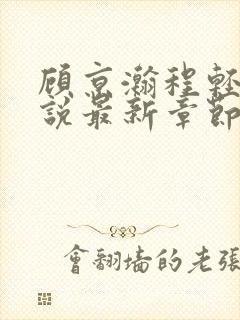 顾京瀚程轻
說最新章節
會翻墙的老張